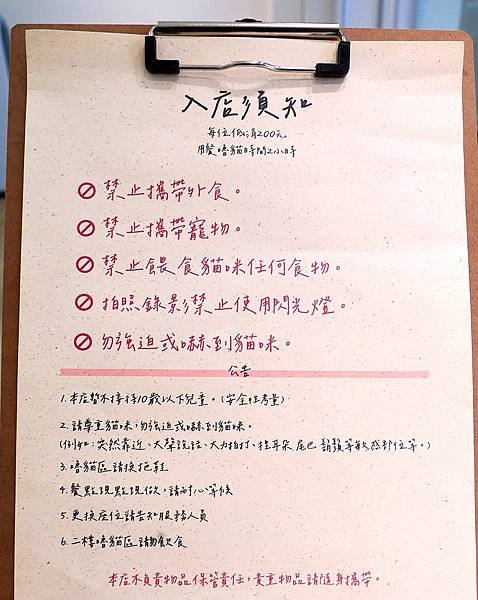 入店須知
每位低消200元
用餐嚕貓時間2小時
禁止攜帶外食。
禁止攜帶寵物。
禁止餵食貓咪任何食物。
拍照錄影禁止使用閃光燈。
勿強迫或嚇到貓咪。
公告
1. 本店暫不接待10歲以下兒童。(安全性考量)
2. 請尊重貓咪,勿強迫或嚇到貓咪。
(例如:突然靠近、大聲說話、大力拍打、拉耳朵 尾巴 鬍鬚等敏感部位等。)
3. 嚕貓區請換拖鞋
4. 餐點現點現做,請耐心等候
5. 更換座位請告知服務人員
6. 二樓嚕貓區請勿飲食
本店不負責物品保管責任,貴重物品請隨身攜帶。